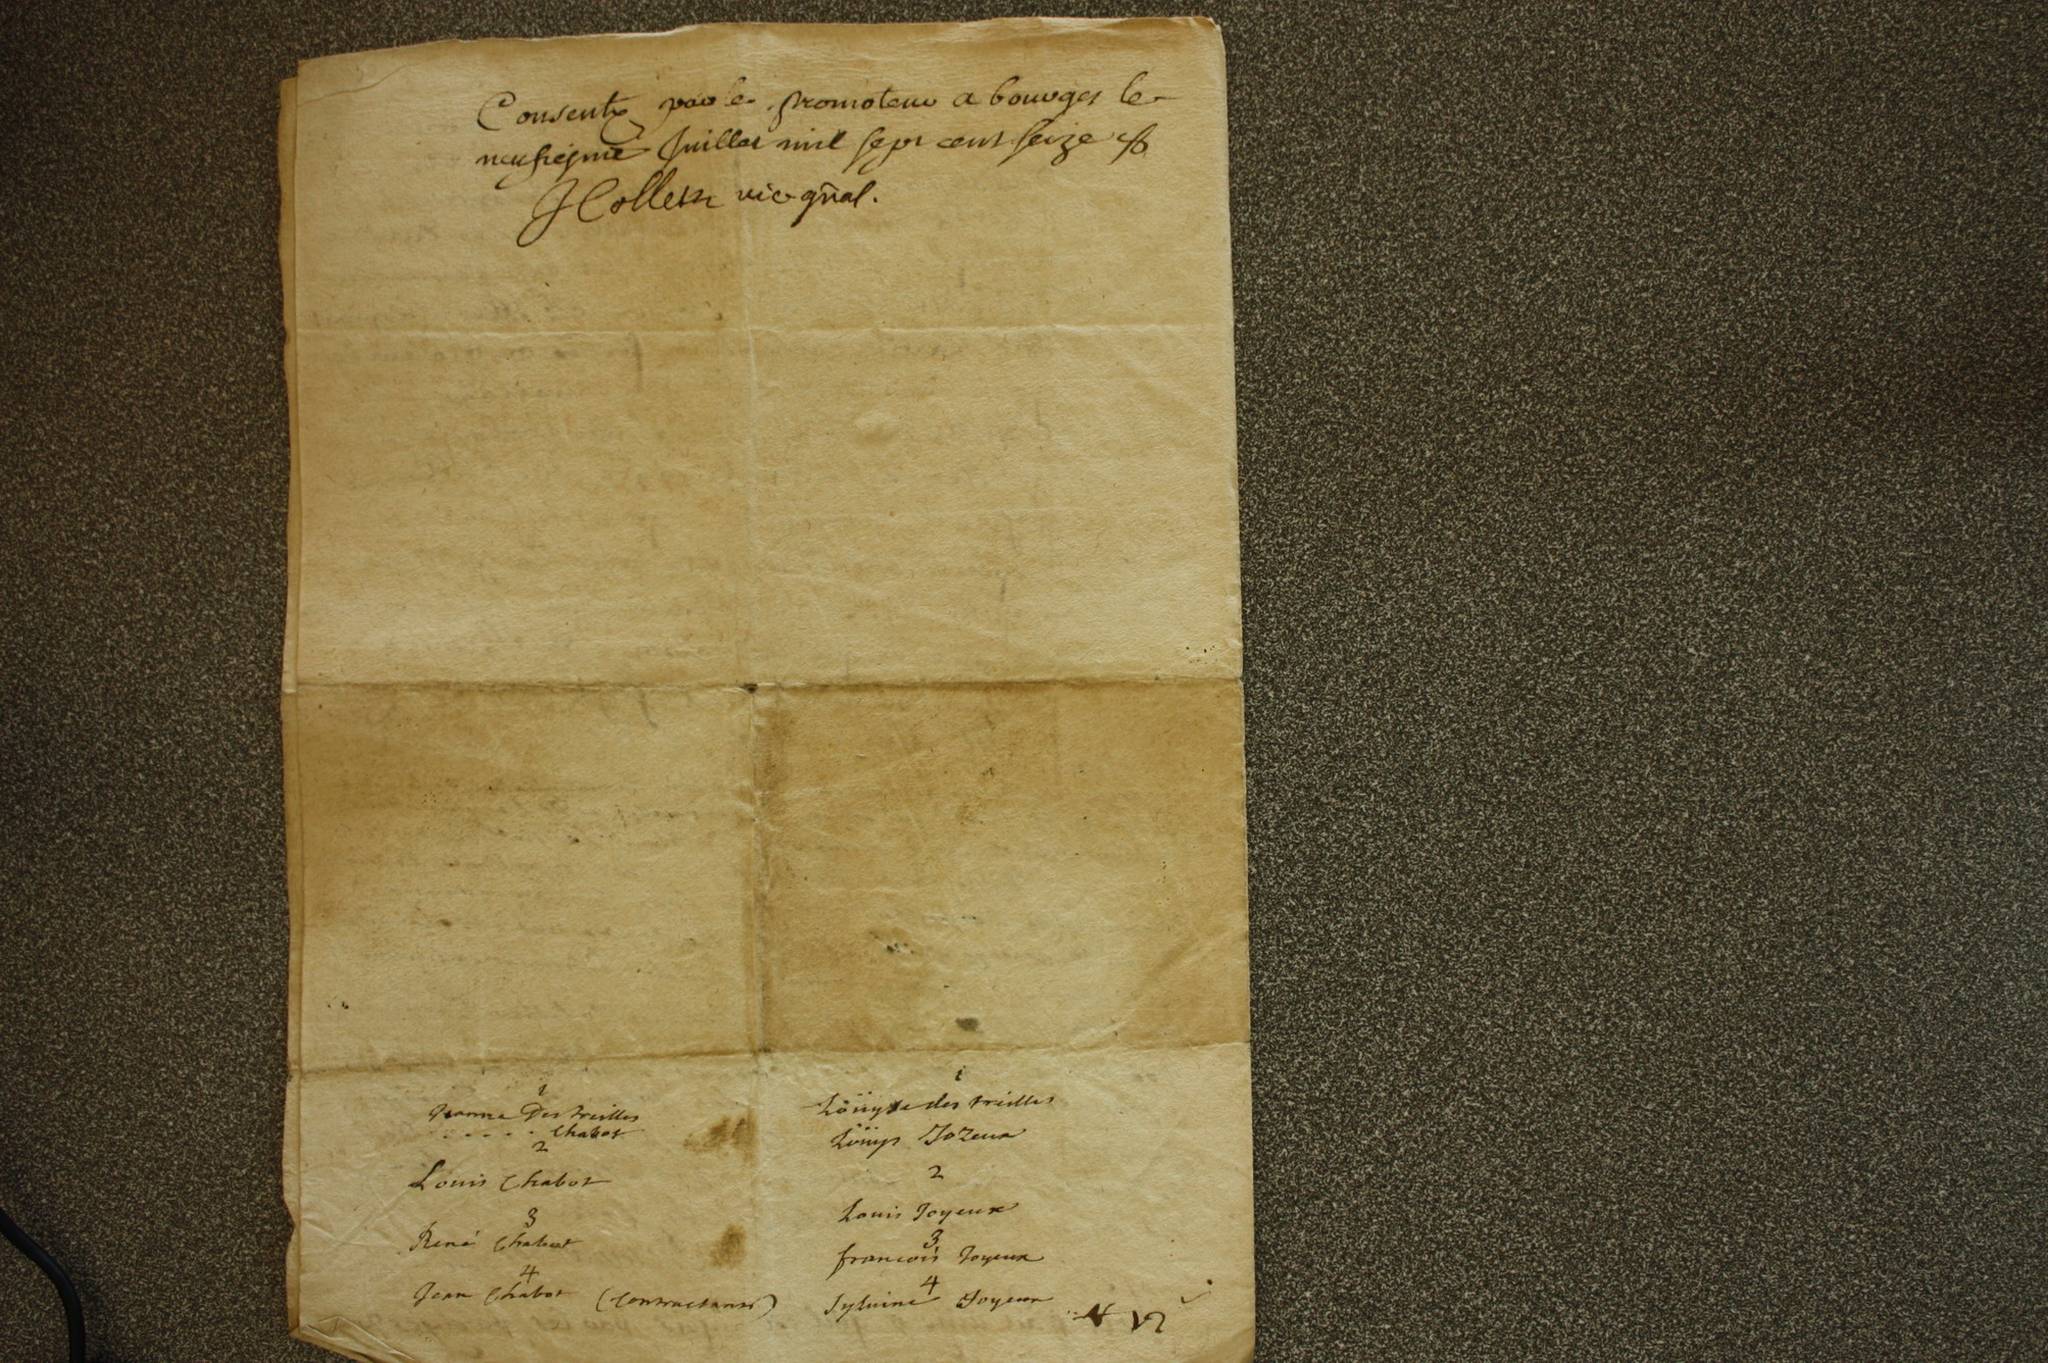 Consenty par le promoteur a bourges le
neufiesme Juillet mil sept cent seize
J Collet vic gñal.
1
Jeanne Destreilles
..... Chabot
2
Louis Chabot
3
René Chabot
4
Jean Chabot (contractants)
1
Loüyse des treilles
Loüys Jozeux
2
Louis Joyeux
3
francois Joyeux
4
Sylvine Joyeux